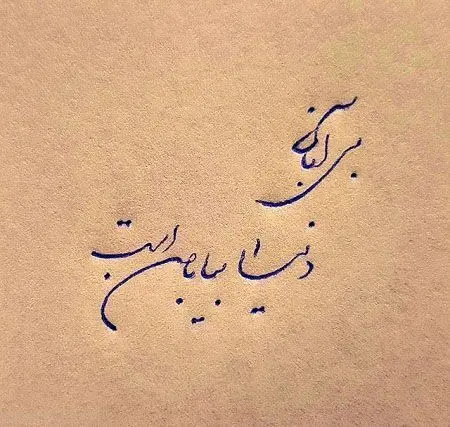 بی
دنیا بیابان است